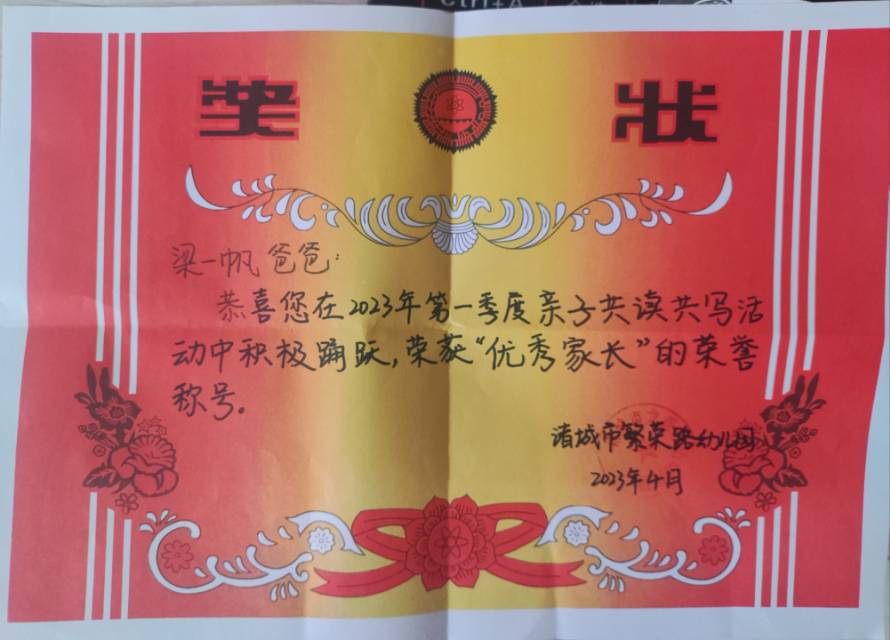 Ctrl+A
奖 状
梁一帆爸爸:
恭喜您在2023年第一季度亲子共读共写活
动中积极踊跃,荣获“优秀家长”的荣誉
称号。
诸城市繁荣路幼儿园
2023年4月